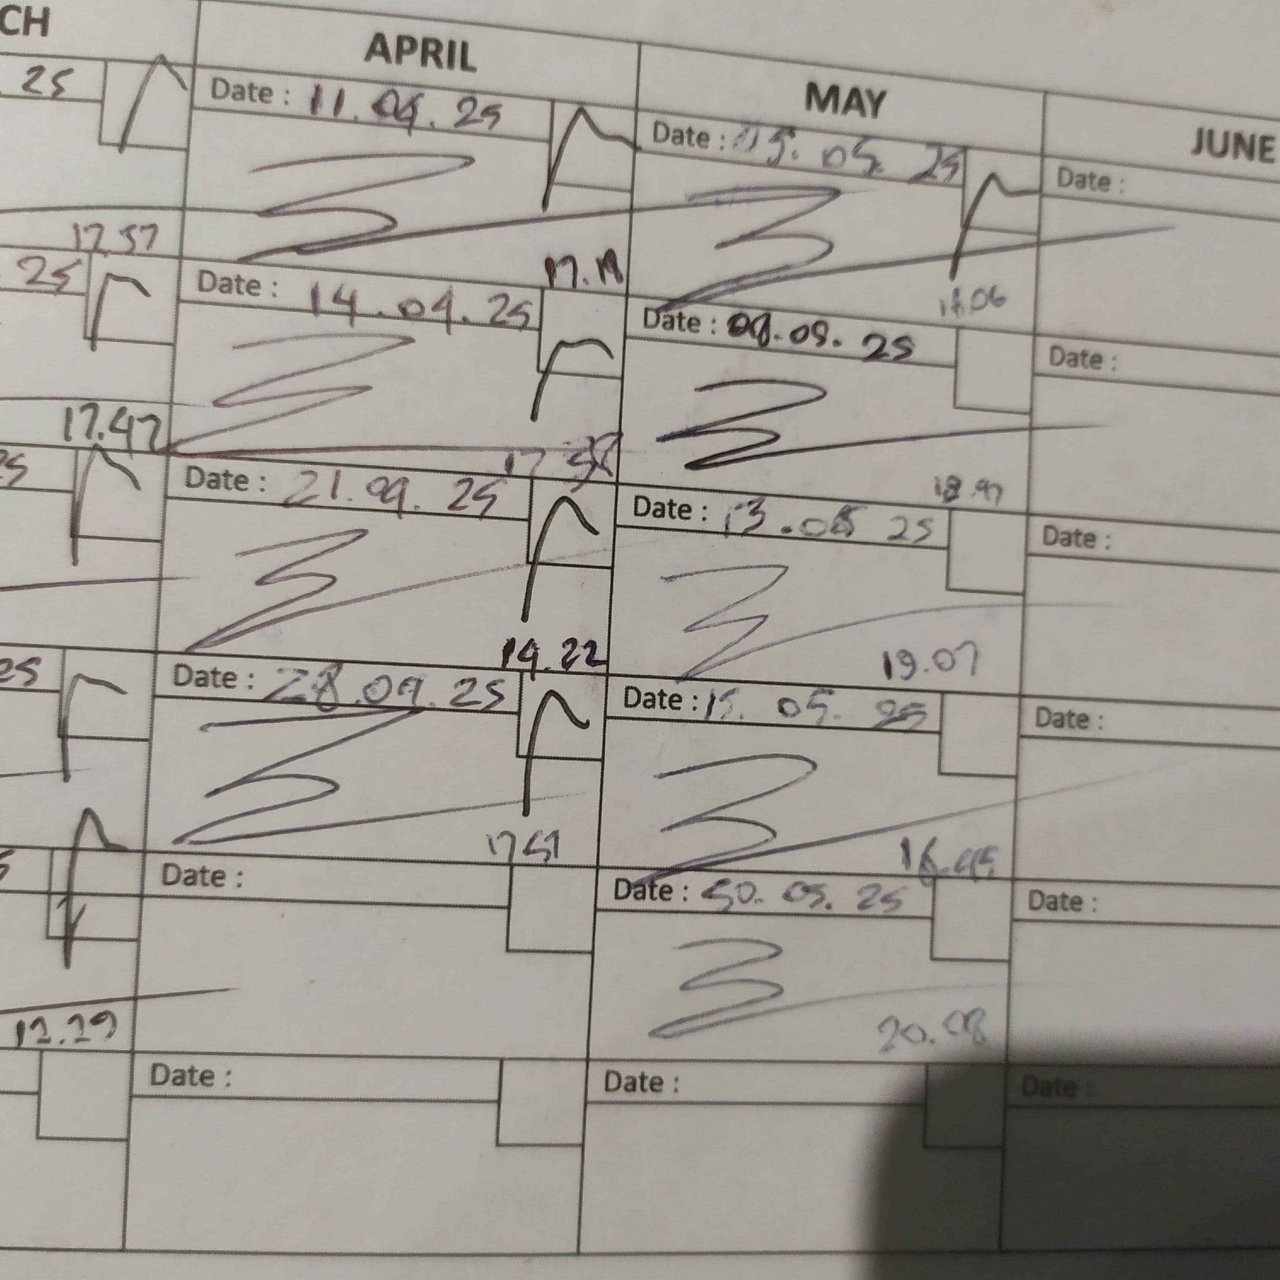 CH
APRIL
MAY
JUNE
25
Date : 11.04.25
Date : 05.05.25
Date :
17.57
17.19
18.06
25
Date : 14.04.25
Date : 09.05.25
Date :
17.47
17 58
18.47
25
Date : 21.04.25
Date : 13.05 25
Date :
19.22
19.07
25
Date : 28.04.25
Date : 15. 05. 25
Date :
17 51
16.45
Date :
Date : 30. 05. 25
Date :
20.08
Date :
Date :
Date :